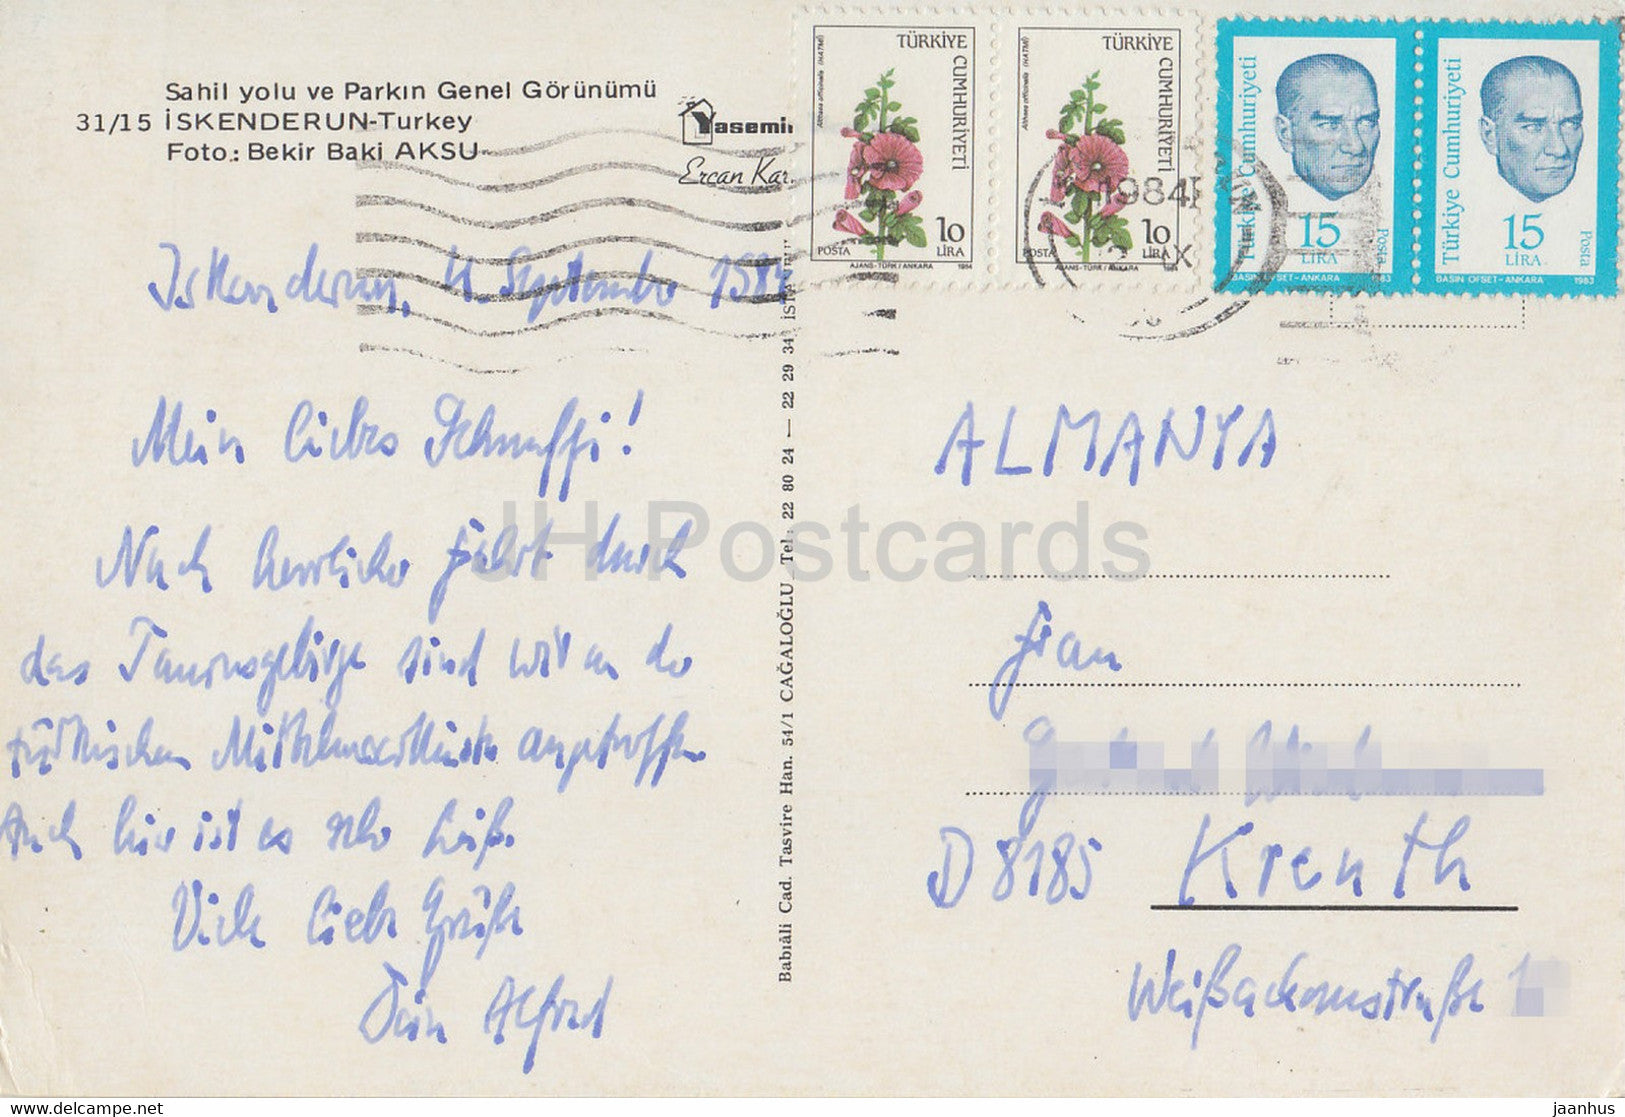 Sahil yolu ve Parkın Genel Görünümü
31/15 İSKENDERUN-Turkey
Foto.: Bekir Baki AKSU
Yasemin
Ercan Kar.
Althaea officinalis (HATMİ)
TÜRKİYE CUMHURİYETİ
10 LİRA
POSTA
AJANS-TÜRK/ANKARA 1984
Althaea officinalis (HATMİ)
TÜRKİYE CUMHURİYETİ
10 LİRA
POSTA
AJANS-TÜRK/ANKARA 1984
Türkiye Cumhuriyeti
15 LİRA
Posta
BASIN OFSET-ANKARA 1983
Türkiye Cumhuriyeti
15 LİRA
Posta
BASIN OFSET-ANKARA 1983
1984
IX
Iskenderun, 4. September 1984
Mein liebes Schnuffi!
Nach herrlicher Fahrt durch
das Taurusgebirge sind wir an der
türkischen Mittelmeerküste angetroffen
Auch hier ist es sehr heiß.
Viele liebe Grüße
Dein Alfred
Babıâli Cad. Tasvire Han. 54/1 CAĞALOĞLU Tel: 22 80 24 — 22 29 34 İSTA
ALMANYA
Frau
D 8185 Kreuth
Weißachaustraße
JH Postcards
www.delcampe.net
jaanhus